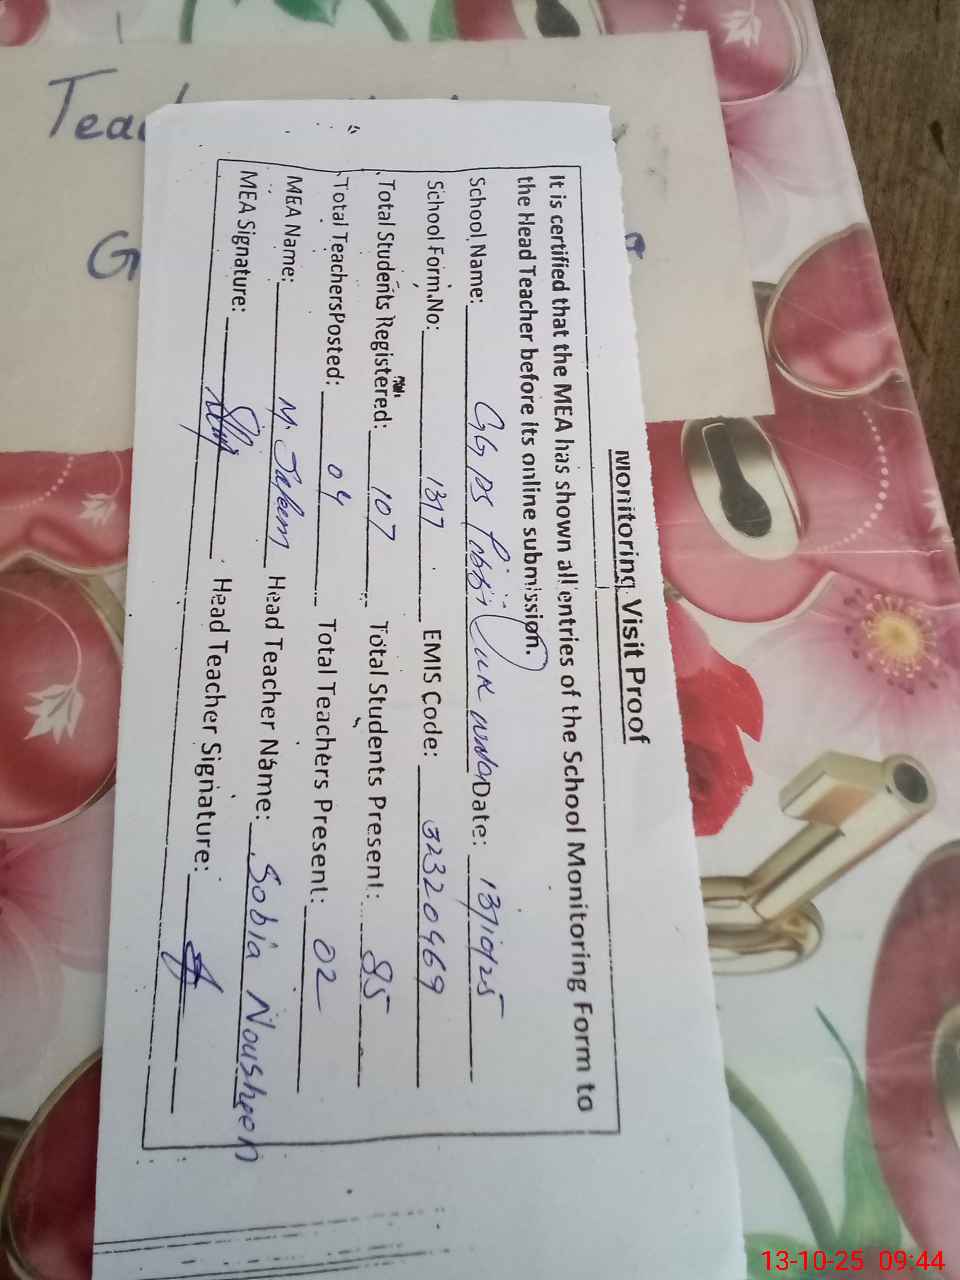 Monitoring Visit Proof
It is certified that the MEA has shown all entries of the School Monitoring Form to
the Head Teacher before its online submission.
School Name: GGPS Date: 13/10/25
School Form.No: 1317 EMIS Code: 32320469
Total Students Registered: 107 Total Students Present: 85
Total TeachersPosted: 04 Total Teachers Present: 02
MEA Name: M. Saleem Head Teacher Name: Sobia Nousheen
MEA Signature: Head Teacher Signature:
13-10-25 09:44